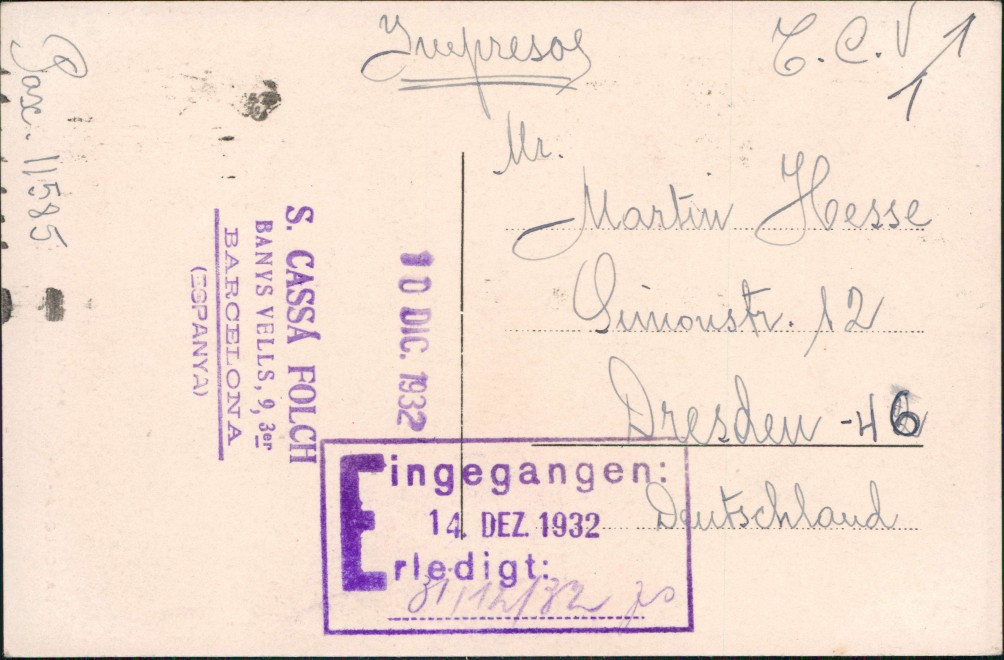 Impresos
T. C. V 1
1
Pax. 11585
Mr.
Martin Hesse
Simonstr. 12
Dresden - 46
Deutschland
S. CASSÁ FOLCH
BANYS VELLS, 9, 3er
BARCELONA
(ESPANYA)
10 DIC. 1932
Eingegangen:
14. DEZ. 1932
Erledigt:
31/12/32